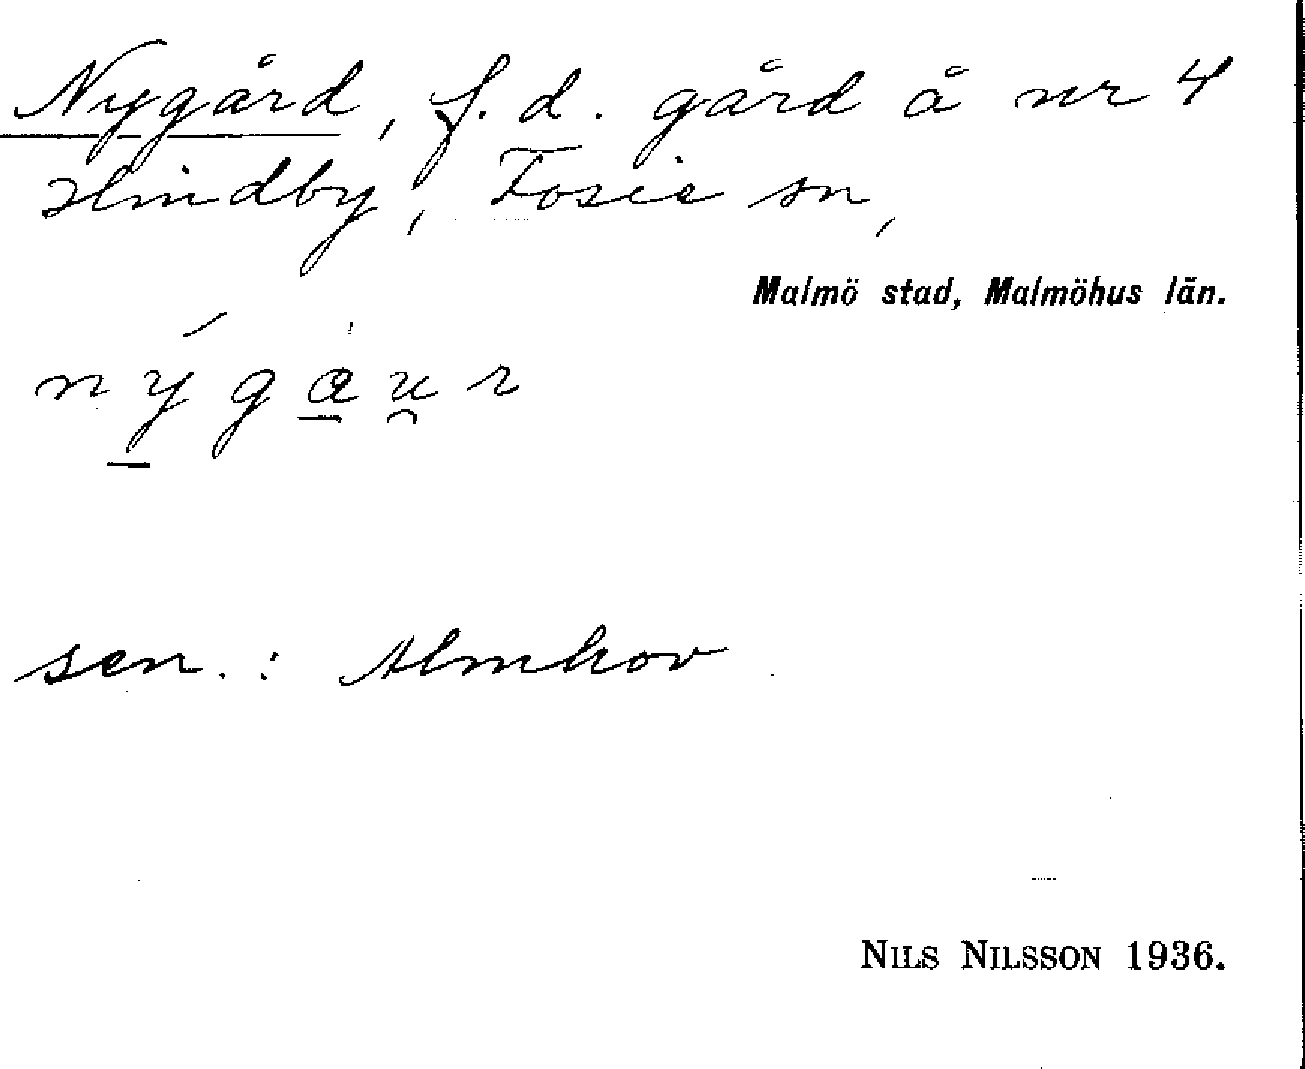 Nygård, f.d. gård å nr 4
Hindby, Fosie sn,
Malmö stad, Malmöhus län.
ný̲ga̲u̯r
sen.: Almhov
NILS NILSSON 1936.